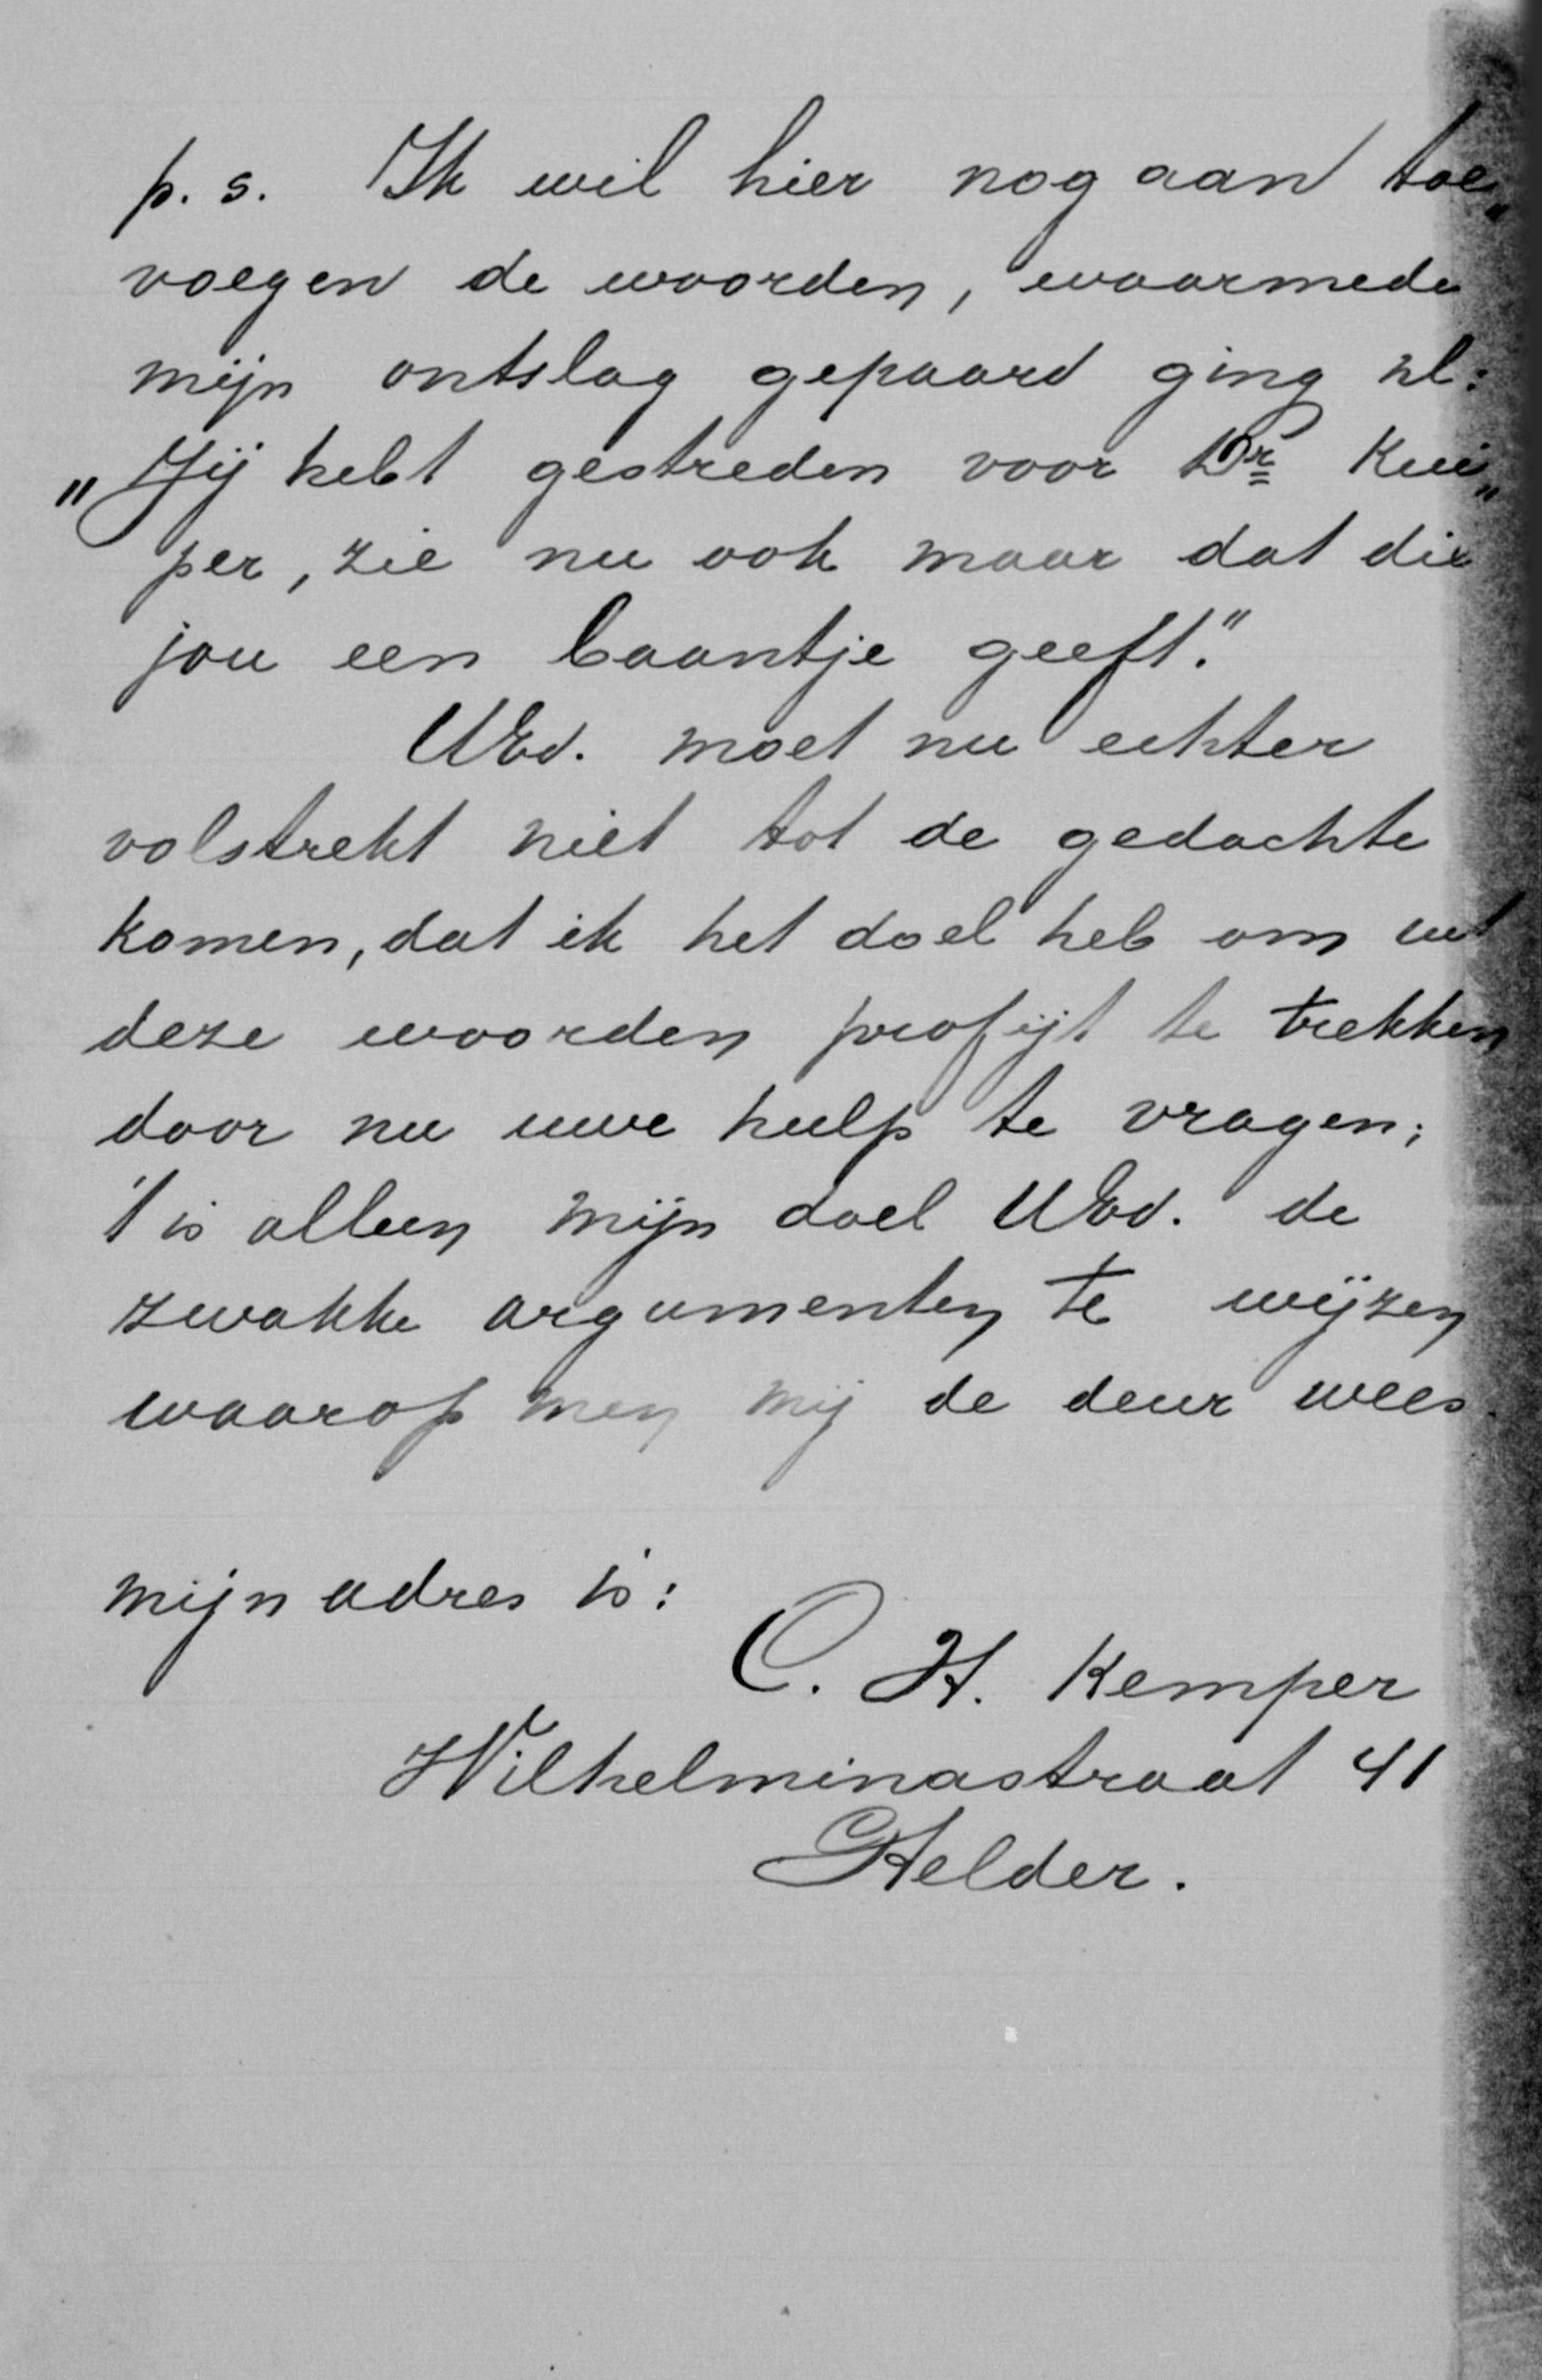 p.s. Ik wil hier nog aan toe„
voegen de woorden, waarmede
mijn ontslag gepaard ging nl:
„Jij hebt gestreden voor Dr Kui„
per, zie nu ook maar dat die
jou een baantje geeft."
UEd. moet nu echter
volstrekt niet tot de gedachte
komen, dat ik het doel heb om uit
deze woorden profijt te trekken
door nu uwe hulp te vragen;
't is alleen mijn doel UEd. de
zwakke argumenten te wijzen
waarop men mij de deur wees.
mijn adres is:
C. H. Kemper
Wilhelminastraat 41
Helder.